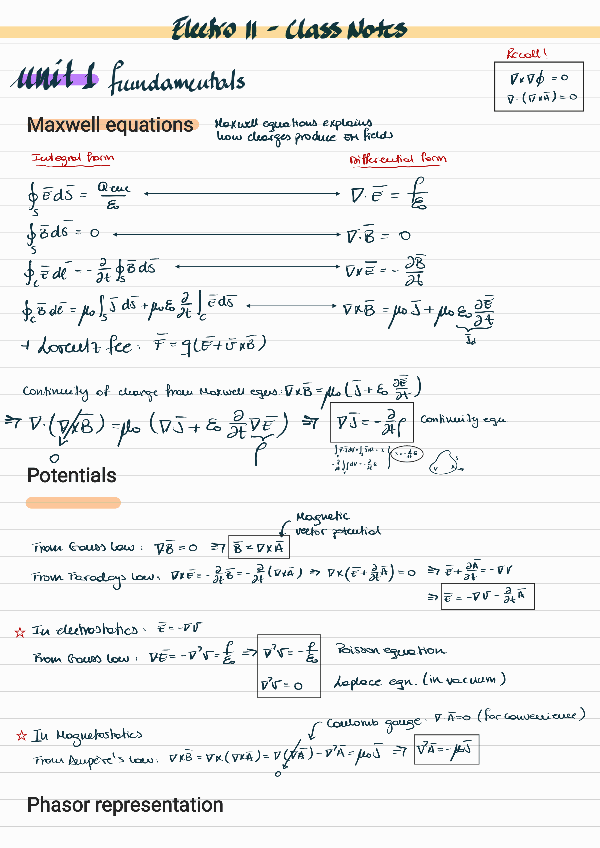 Electro II - Class Notes
Recall!
∇×∇ϕ = 0
∇·(∇×A̅) = 0
unit 1 fundamentals
Maxwell equations
Maxwell equations explains
how charges produce EM fields
Integral form
Differential form
∮_S E̅ dS̅ = Qenc/ε₀ ⟷ ∇·E̅ = ρ/ε₀
∮_S B̅ dS̅ = 0 ⟷ ∇·B̅ = 0
∮_C E̅ dl̅ = -∂/∂t ∮_S B̅ dS̅ ⟷ ∇×E̅ = -∂B̅/∂t
∮_C B̅ dl̅ = μ₀ ∫_S J̅ dS̅ + μ₀ε₀ ∂/∂t ∫_C E̅ dS̅ ⟷ ∇×B̅ = μ₀J̅ + μ₀ε₀ ∂E̅/∂t
J̅d
+ Lorentz fce: F̅ = q(E̅ + v̅×B̅)
Continuity of charge from Maxwell eqns: ∇×B̅ = μ₀(J̅ + ε₀ ∂E̅/∂t)
⇒ ∇·(∇×B̅) = μ₀ (∇J̅ + ε₀ ∂/∂t ∇E̅) ⇒ ∇J̅ = -∂/∂t ρ Continuity equ
0
ρ
Potentials
Magnetic
vector potential
From Gauss Law: ∇B̅ = 0 ⇒ B̅ = ∇×A̅
From Faradays Law: ∇×E̅ = -∂/∂t B̅ = -∂/∂t (∇×A̅) ⇒ ∇×(E̅ + ∂/∂t A̅) = 0 ⇒ E̅ + ∂A̅/∂t = -∇V
⇒ E̅ = -∇V - ∂/∂t A̅
☆ In electrostatics: E̅ = -∇V
From Gauss Law: ∇E̅ = -∇²V = ρ/ε₀ ⇒ ∇²V = -ρ/ε₀ Poisson equation
∇²V = 0 Laplace eqn. (in vacuum)
Coulomb gauge: ∇·A̅ = 0 (for convenience)
☆ In Magnetostatics
From Ampère's Law: ∇×B̅ = ∇×(∇×A̅) = ∇(∇A̅) - ∇²A̅ = μ₀J̅ ⇒ ∇²A̅ = -μ₀J̅
0
Phasor representation